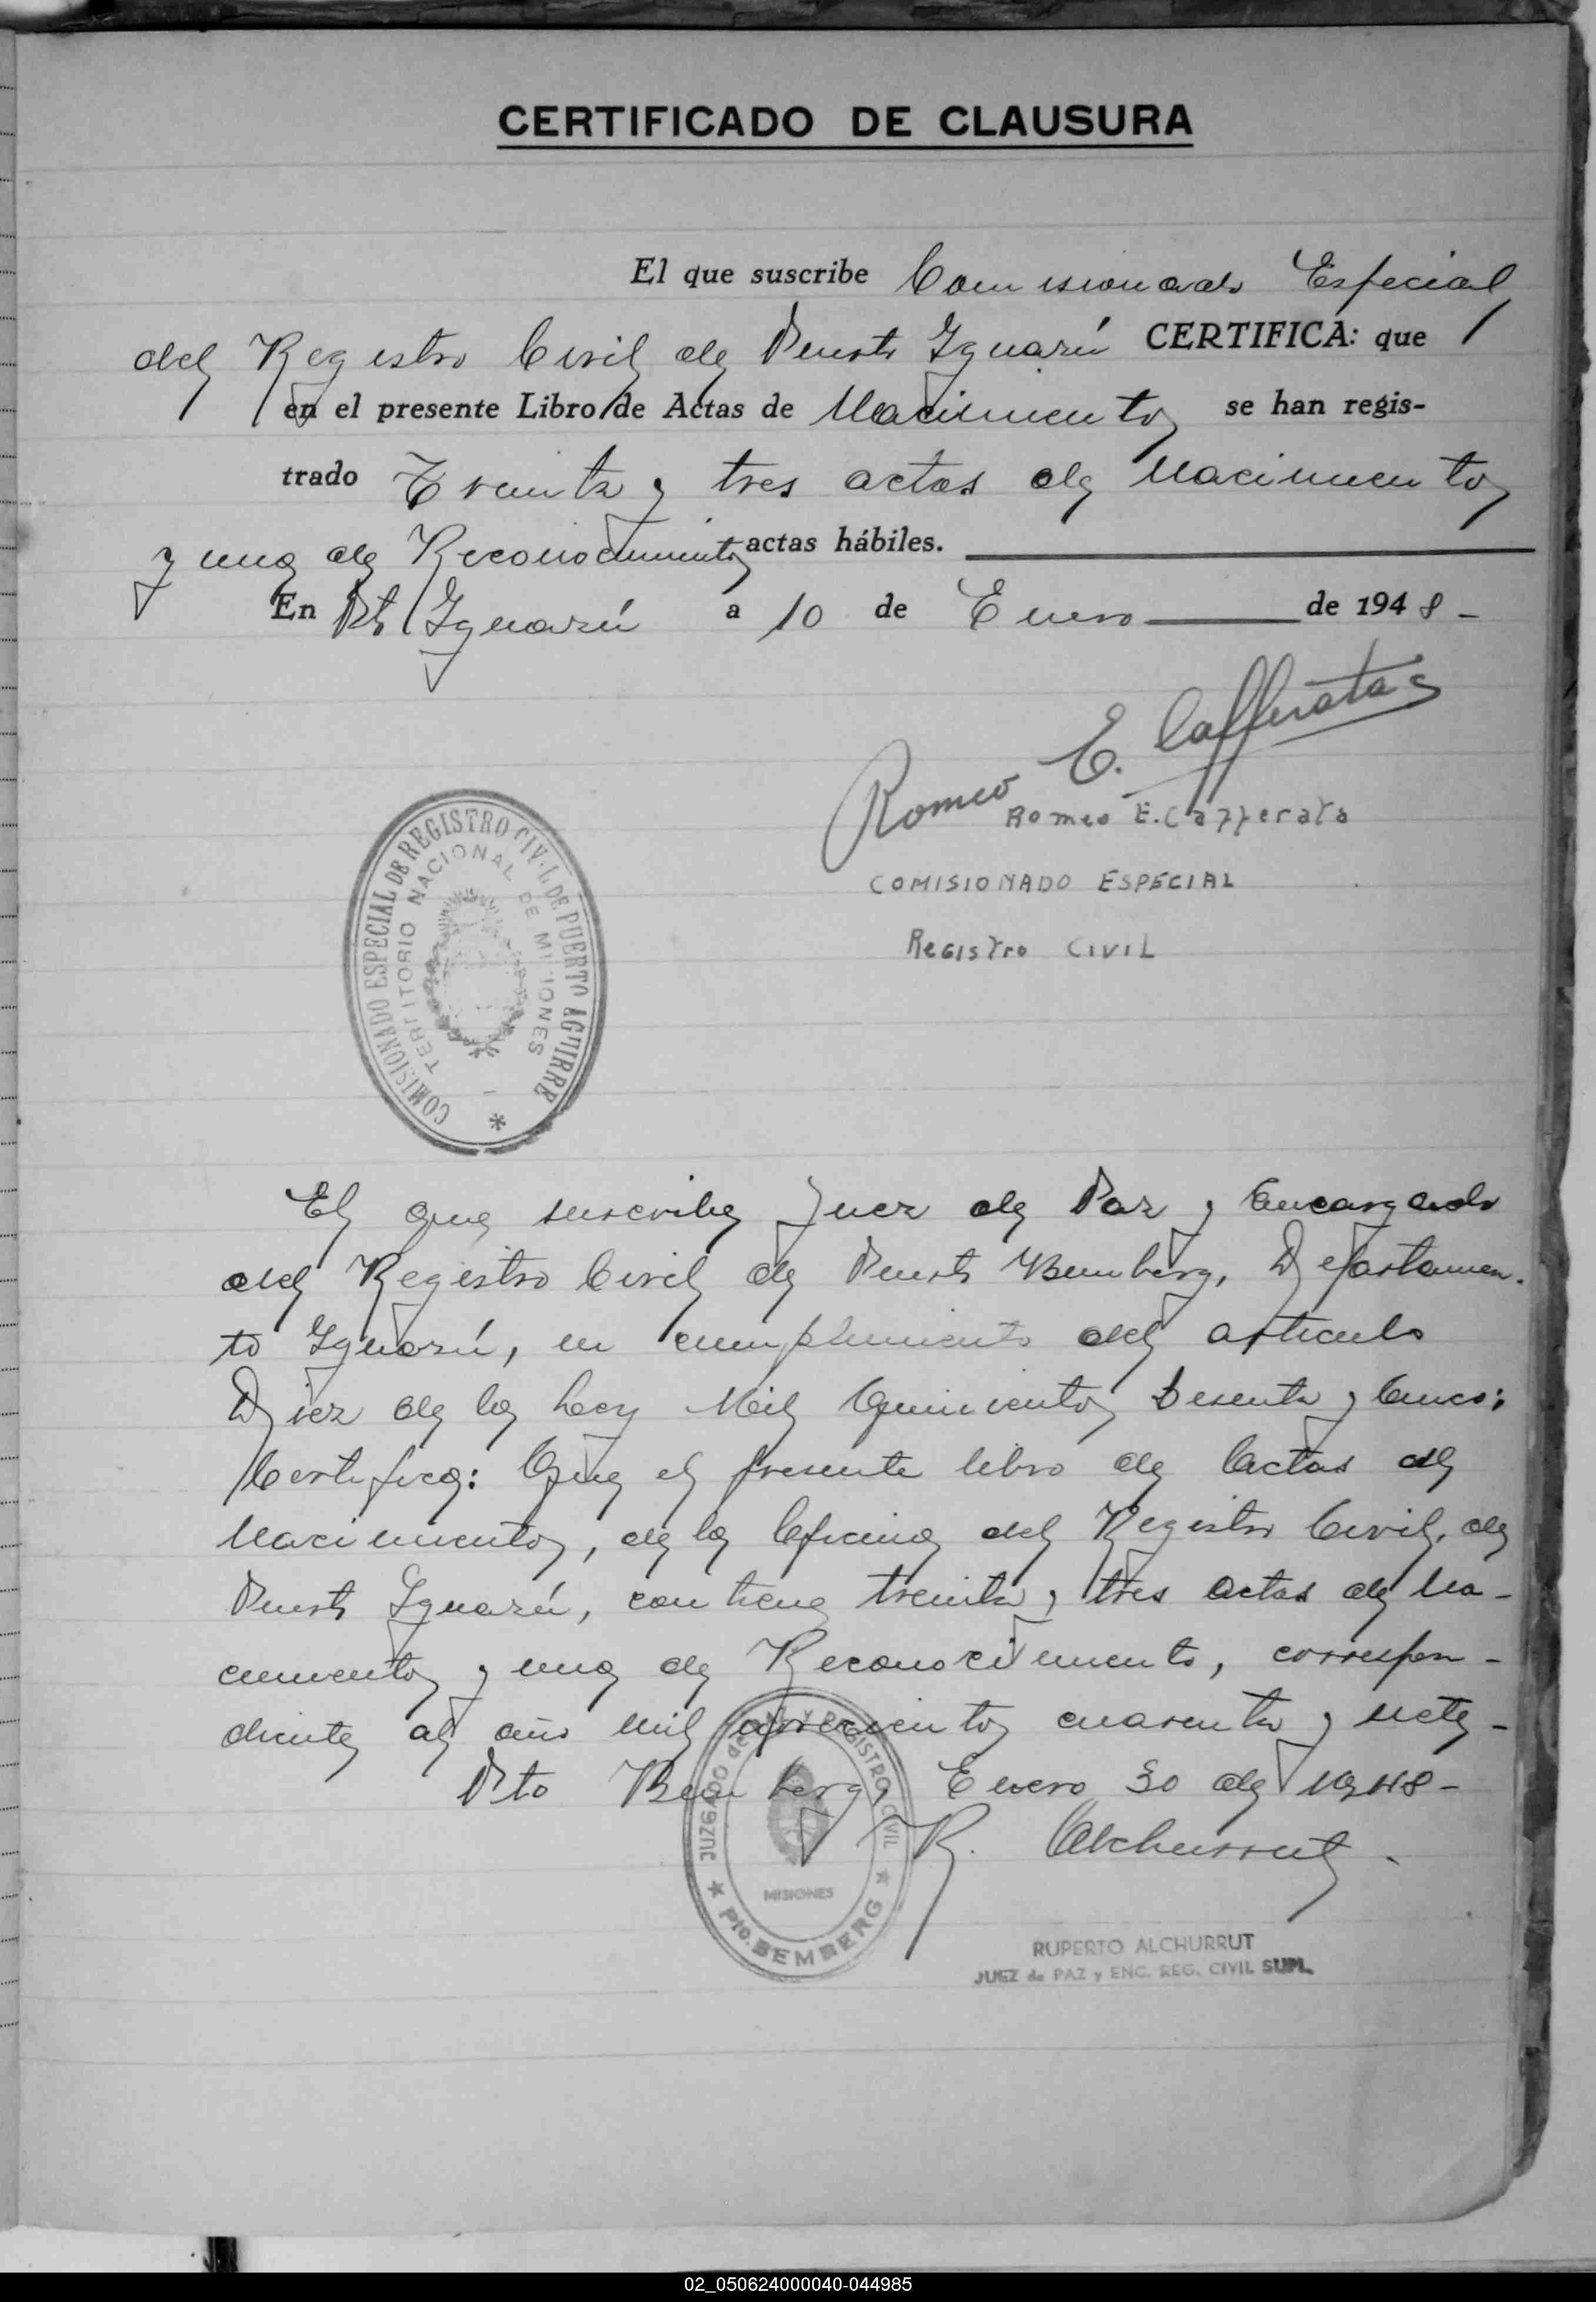 CERTIFICADO DE CLAUSURA
El que suscribe Comisionado Especial
del Registro Civil de Puerto Iguazú CERTIFICA: que
en el presente Libro de Actas de Nacimientos se han regis-
trado Treinta y tres actas de Nacimientos
y una de Reconocimiento actas hábiles.
En Pto Iguazú a 10 de Enero de 1948-
Romeo E. Cafferata
Romeo E. Cafferata
COMISIONADO ESPECIAL
Registro CIVIL
COMISIONADO ESPECIAL DE REGISTRO CIVIL DE PUERTO AGUIRRE
TERRITORIO NACIONAL DE MISIONES
El que suscribe Juez de Paz y Encargado
del Registro Civil de Puerto Bemberg, Departamen-
to Iguazú, en cumplimiento del artículo
Diez de la Ley Mil Quinientos Sesenta y Cinco;
Certifica: Que el presente libro de Actas de
Nacimientos, de la Oficina del Registro Civil, de
Puerto Iguazú, contiene treinta y tres actas de Na-
cimientos y una de Reconocimiento, correspon-
diente al año mil novecientos cuarenta y siete-
Pto Bemberg, Enero 30 de 1948-
R. Alchurrut.
JUZGADO de PAZ Y REGISTRO CIVIL
MISIONES
Pto. BEMBERG
RUPERTO ALCHURRUT
JUEZ de PAZ y ENC. REG. CIVIL SUPL.
02_050624000040-044985